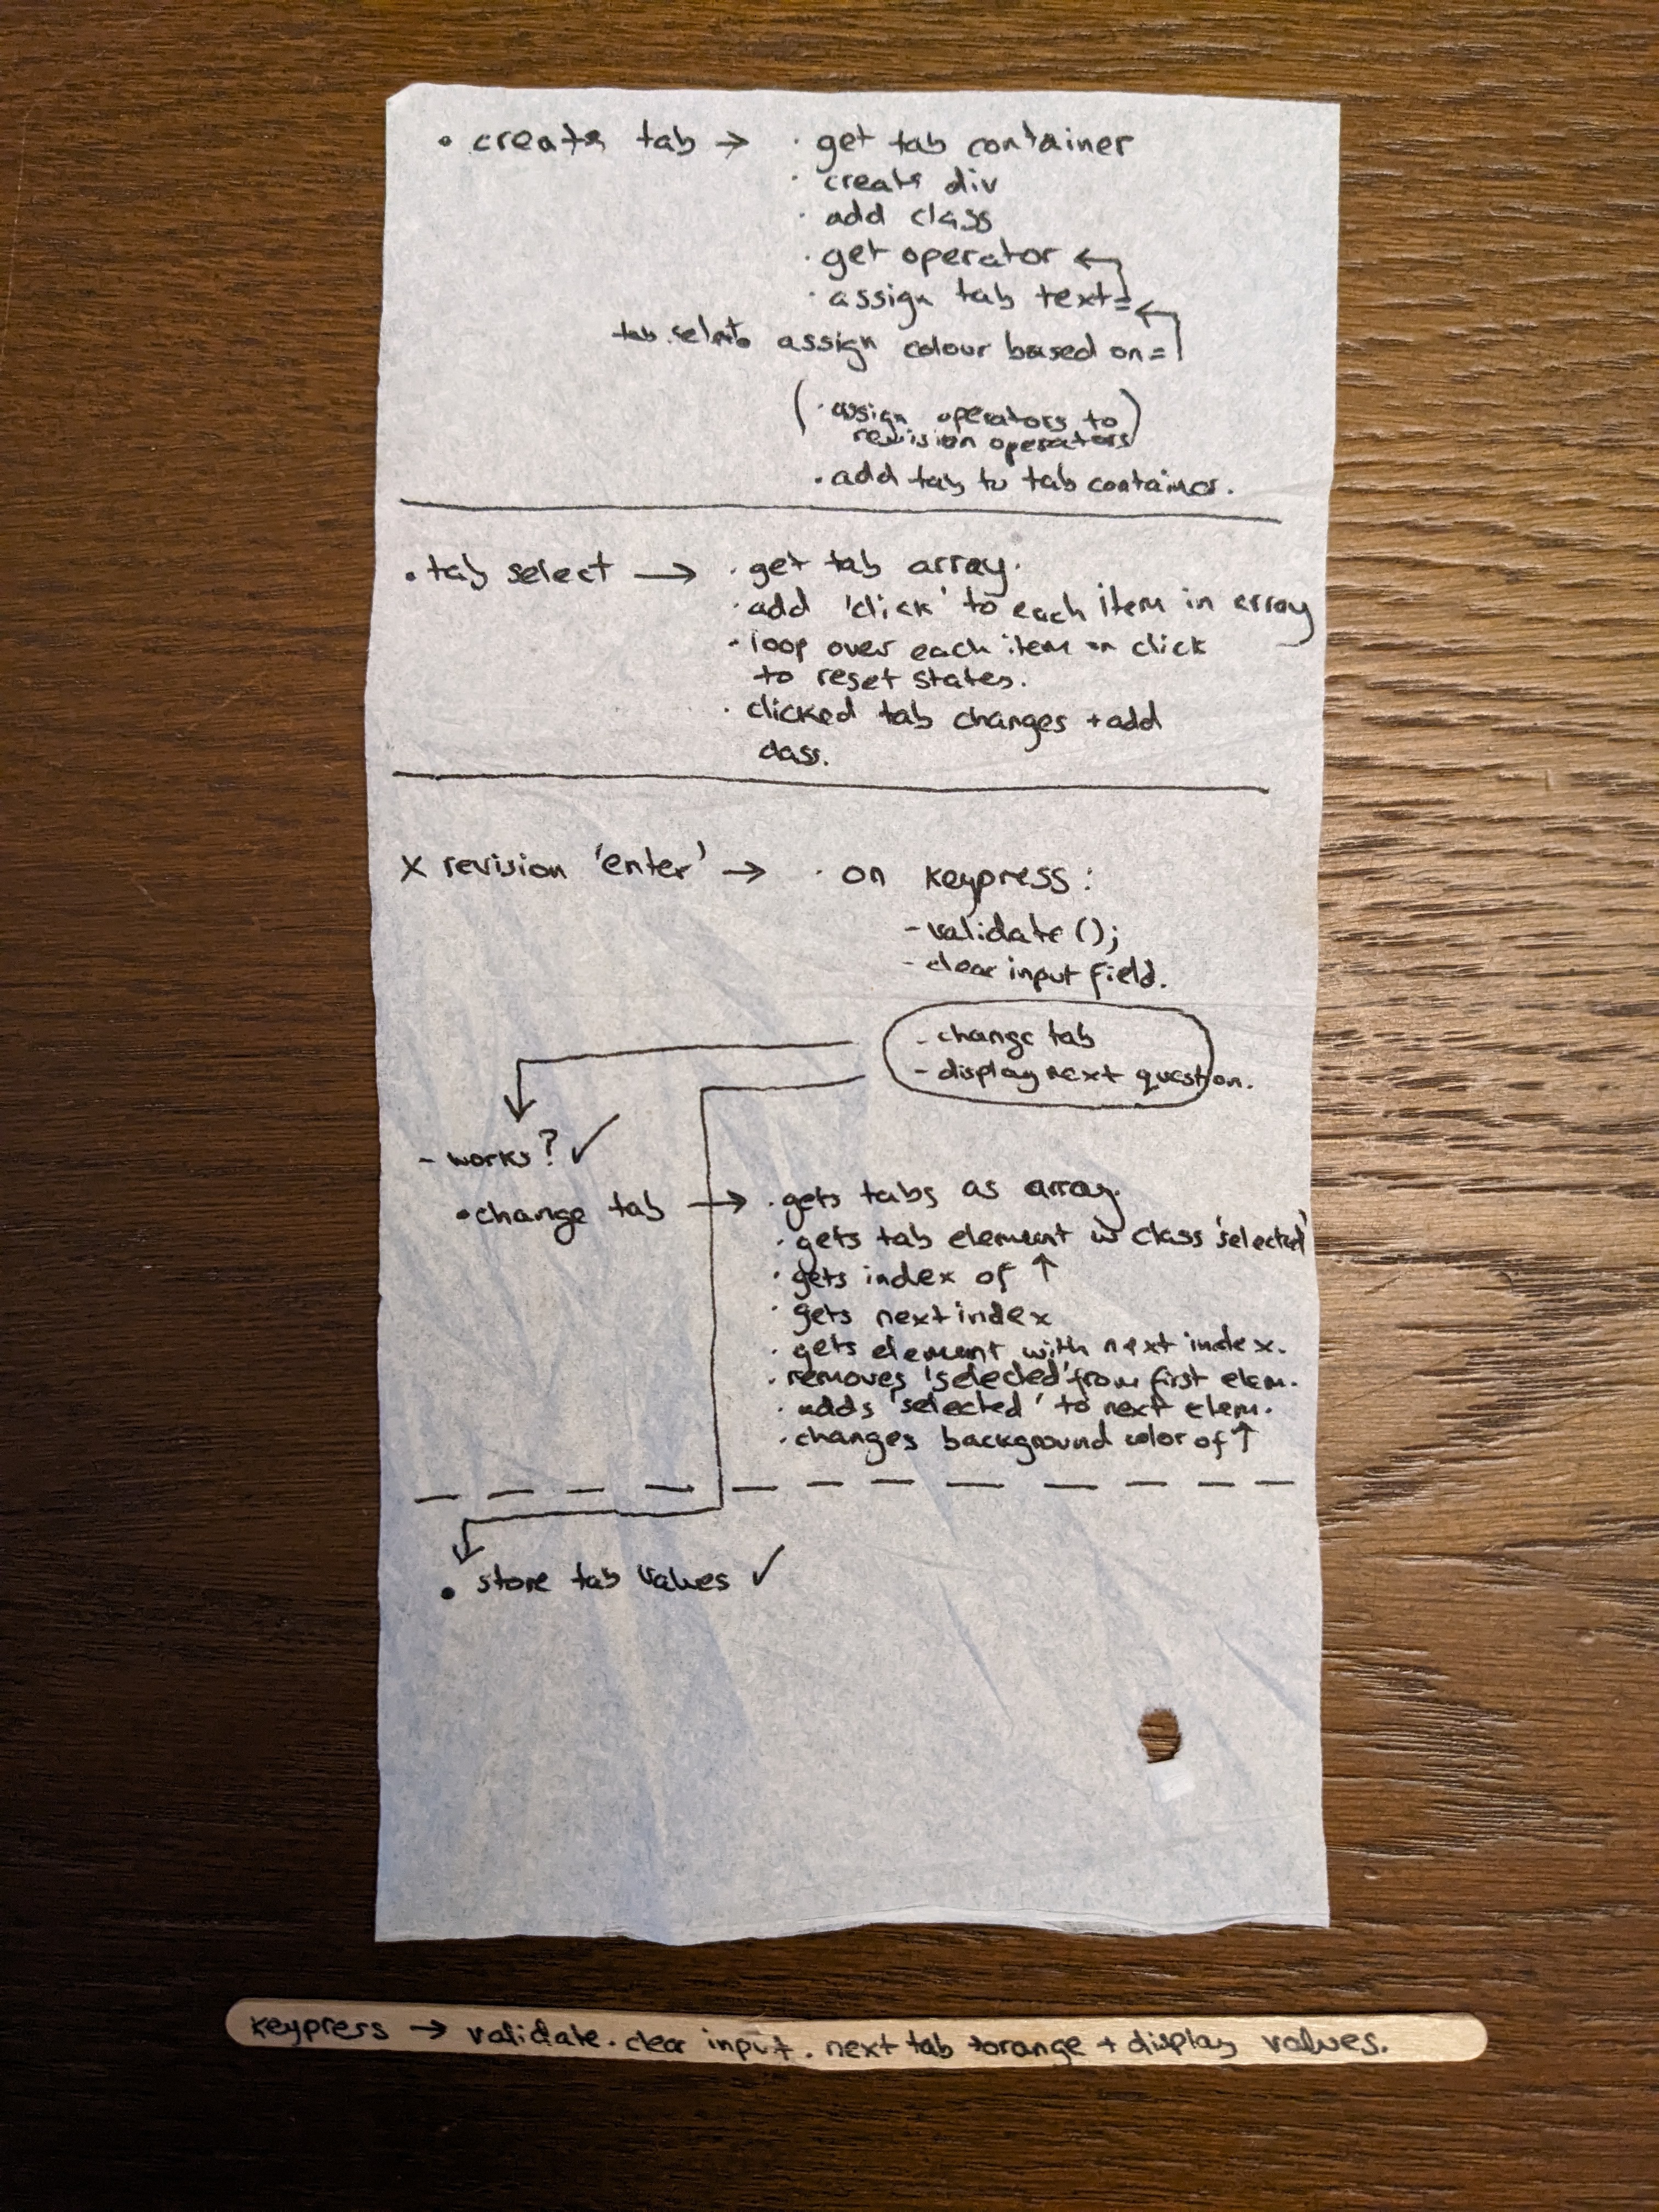 • create tab → · get tab container
· create div
· add class
· get operator ←
· assign tab text = ←
tab select • assign colour based on =
(· assign operators to
revision operators)
· add tab to tab container.
• tab select → · get tab array.
· add 'click' to each item in array
· loop over each item on click
to reset states.
· clicked tab changes + add
class.
X revision 'enter' → · on keypress:
- validate ();
- clear input field.
- change tab
- display next question.
- works? ✓
• change tab → · gets tabs as array.
· gets tab element w class 'selected'
· gets index of ↑
· gets next index
· gets element with next index.
· removes 'selected' from first elem.
· adds 'selected' to next elem.
· changes background color of ↑
• store tab values ✓
keypress → validate. clear input. next tab torange + display values.